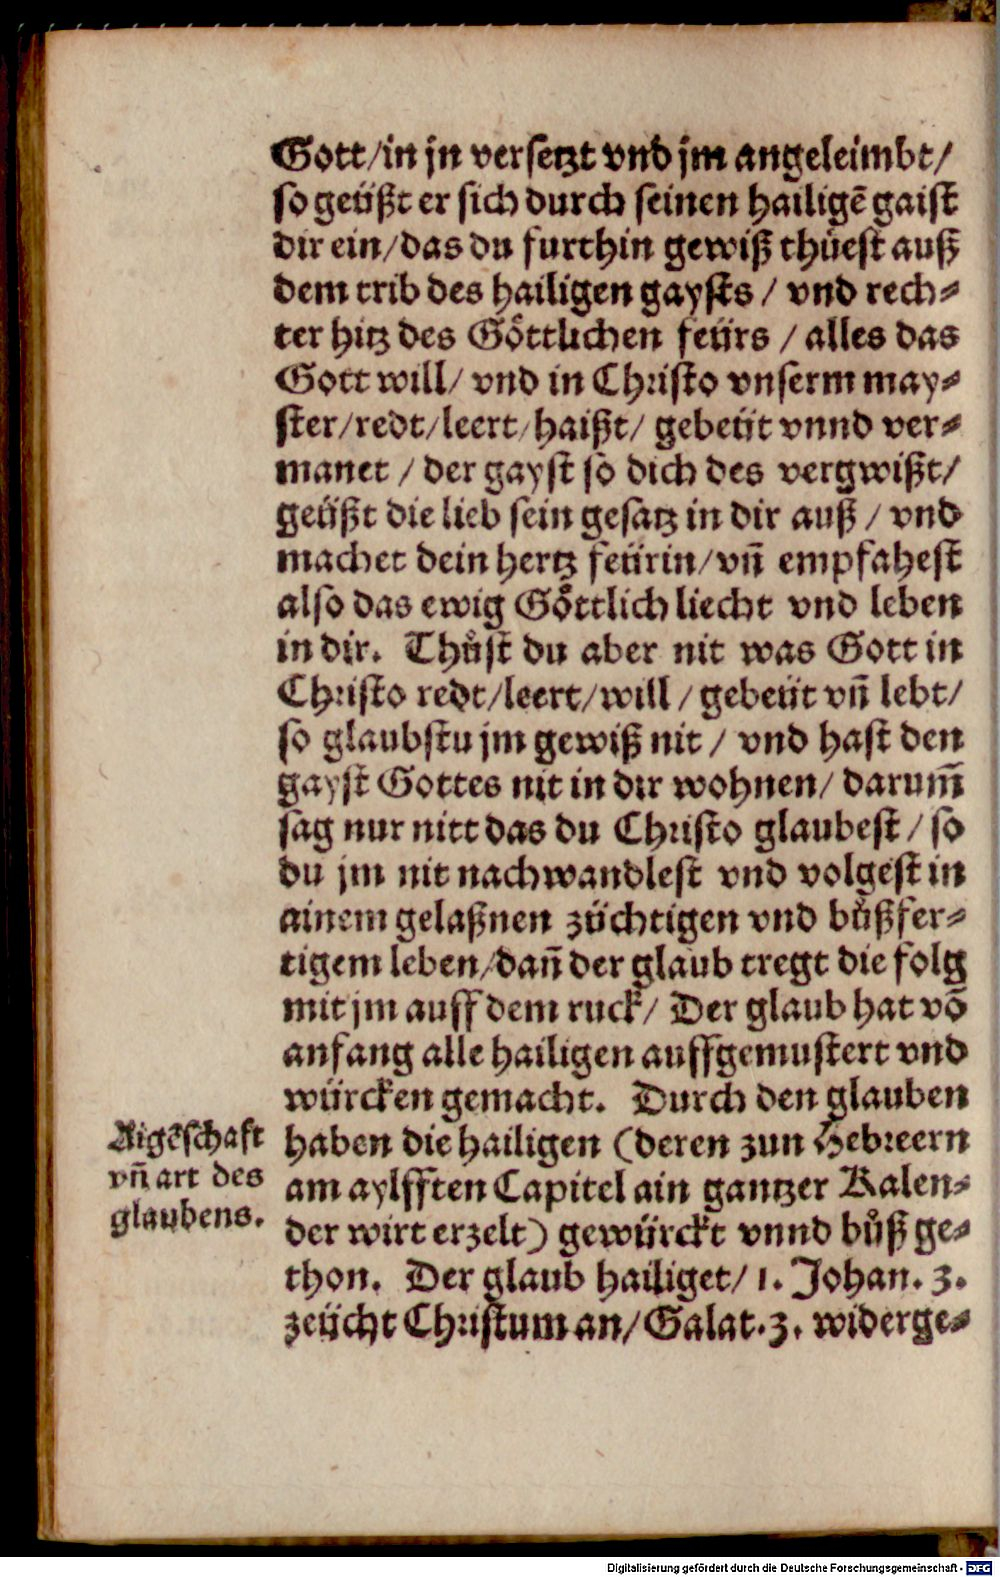 Gott/in jn versetzt vnd jm angeleimbt/
so geüßt er sich durch seinen hailigē gaist
dir ein/das du furthin gewiß thüest auß
dem trib des hailigen gaysts / vnd rech⸗
ter hitz des Göttlichen feürs / alles das
Gott will/ vnd in Christo vnserm may⸗
ster/redt/leert/haißt/ gebeüt vnnd ver⸗
manet / der gayst so dich des vergwißt/
geüßt die lieb sein gesatz in dir auß / vnd
machet dein hertz feürin/vn̄ empfahest
also das ewig Göttlich liecht vnd leben
in dir. Thůst du aber nit was Gott in
Christo redt/leert/will / gebeüt vn̄ lebt/
so glaubstu jm gewiß nit / vnd hast den
gayst Gottes nit in dir wohnen/ darum̄
sag nur nitt das du Christo glaubest / so
du jm nit nachwandlest vnd volgest in
ainem gelaßnen züchtigen vnd bůßfer⸗
tigem leben/dan̄ der glaub tregt die folg
mit jm auff dem ruck/ Der glaub hat vō
anfang alle hailigen auffgemustert vnd
würcken gemacht. Durch den glauben
haben die hailigen (deren zun Hebreern
am aylfften Capitel ain gantzer Kalen⸗
der wirt erzelt) gewürckt vnnd bůß ge⸗
thon. Der glaub hailiget/ 1. Johan. 3.
zeücht Christum an/Galat.3. widerge⸗
Aigēschaft
vn̄ art des
glaubens.
Digitalisierung gefördert durch die Deutsche Forschungsgemeinschaft - DFG